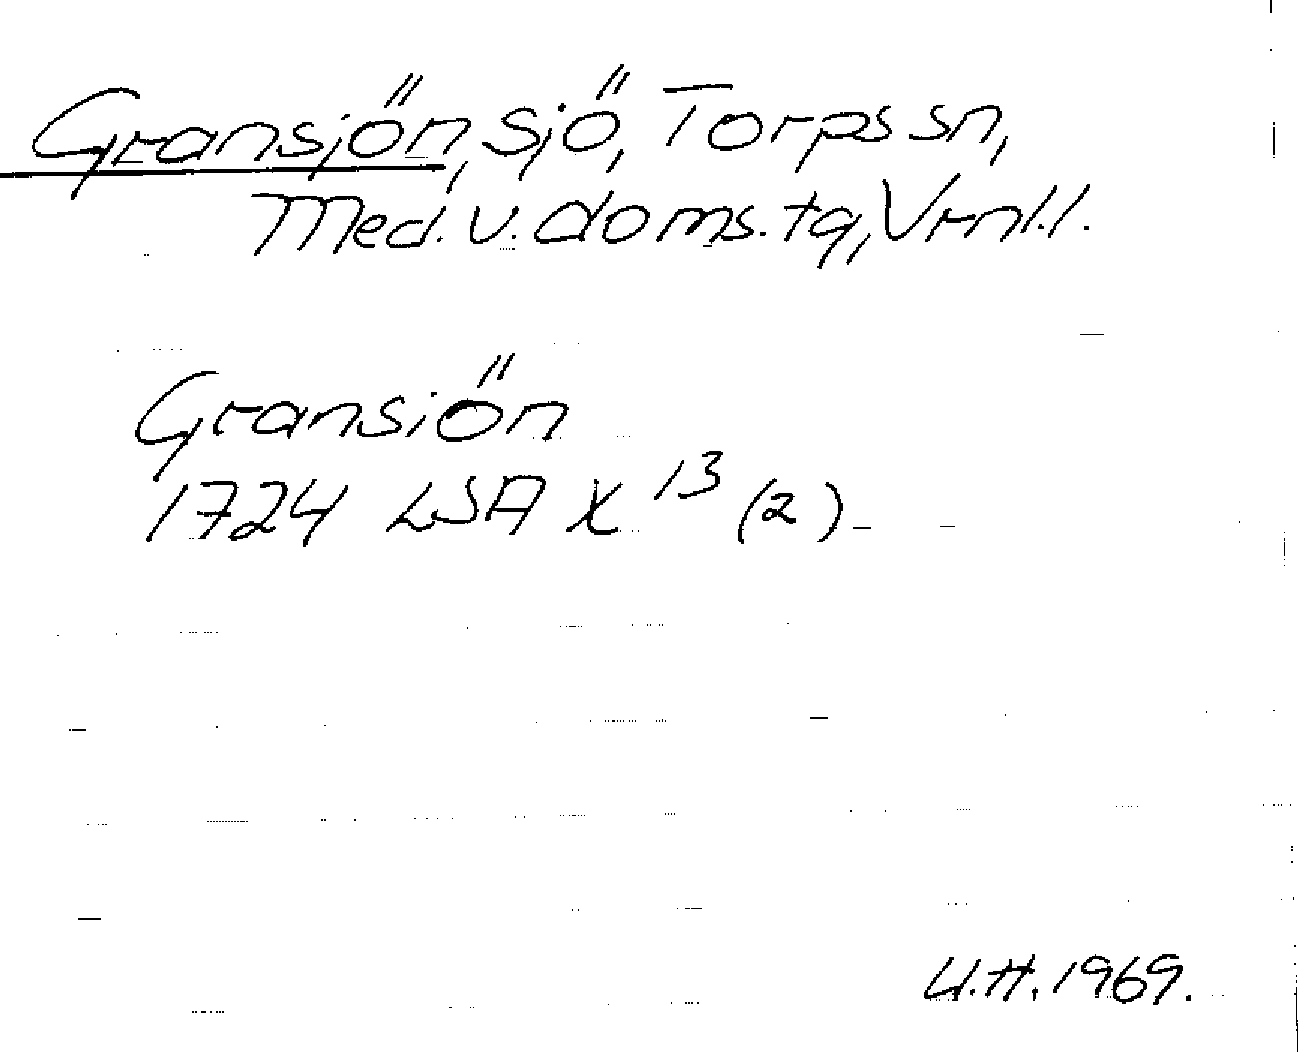 Gransjön, sjö, Torps sn,
Med. v. doms. tg, Vrnl.l.
Gransiön
1724 LSA X 13 (2)
U.H. 1969.